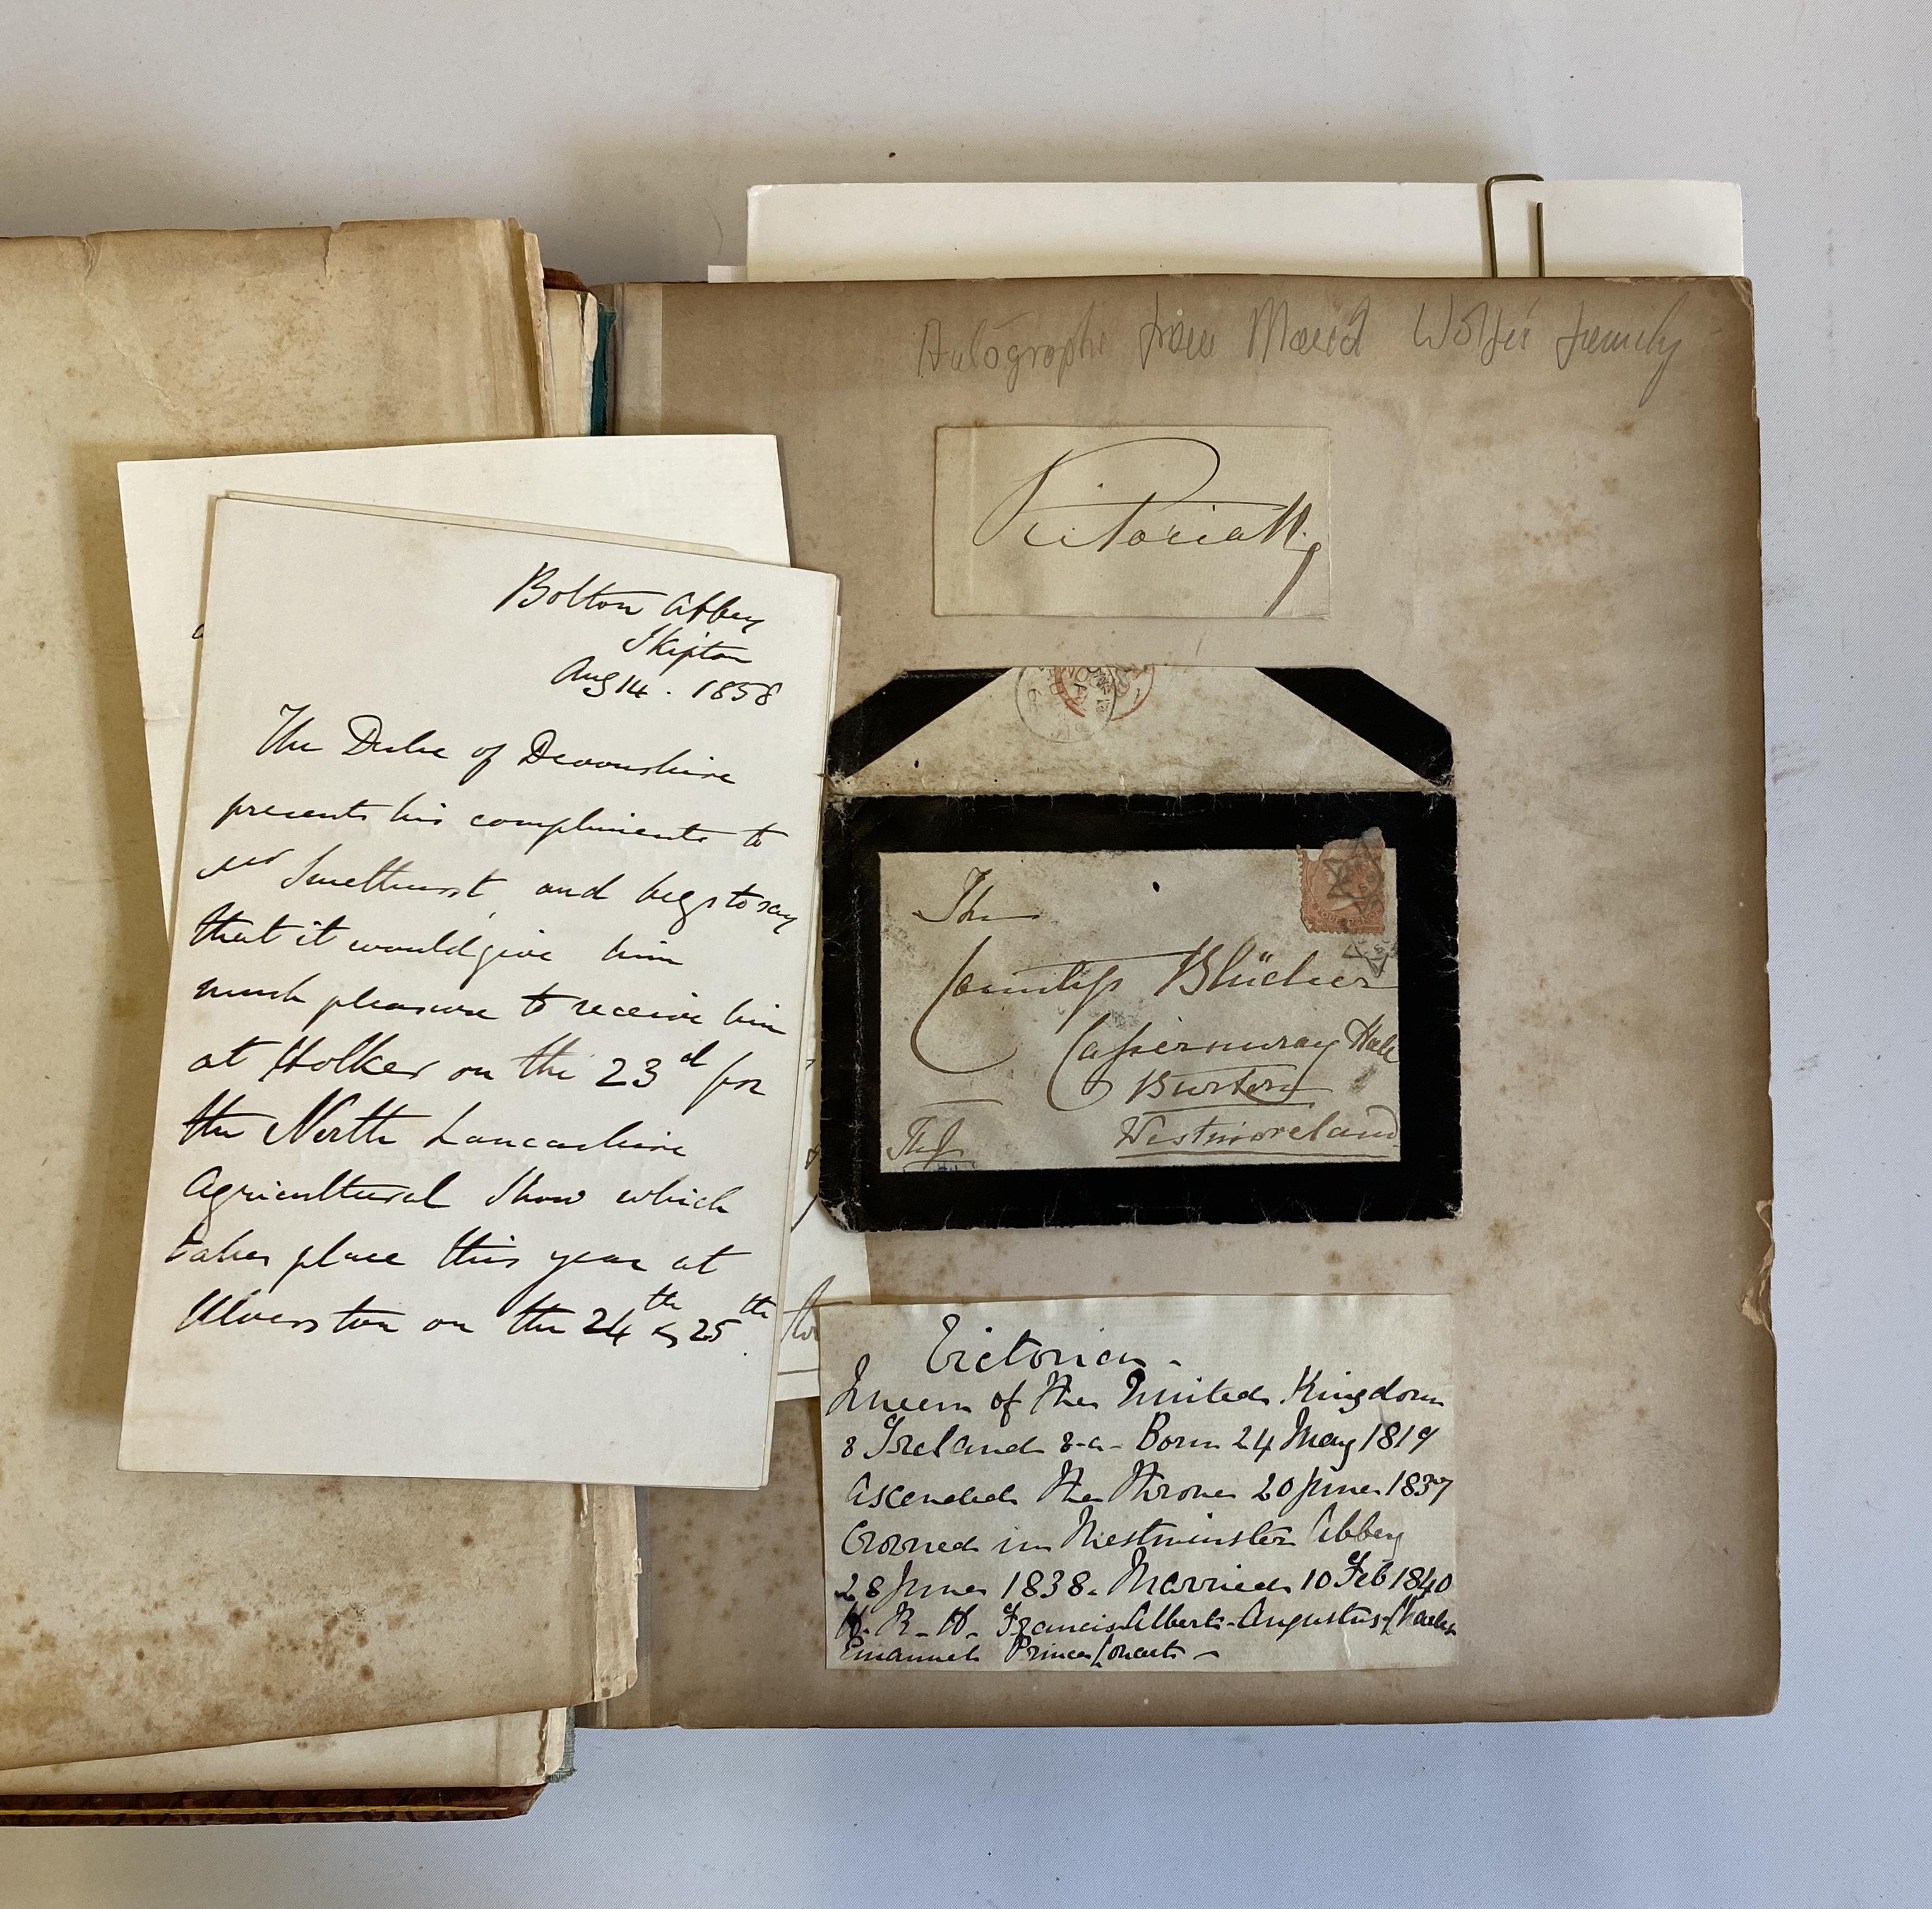 Bolton Abbey
Skipton
Aug 14. 1858
The Duke of Devonshire
presents his compliments to
Mr Smethurst, and begs to say
that it would give him
much pleasure to receive him
at Holker on the 23d for
the North Lancashire
Agricultural Show which
takes place this year at
Ulverston on the 24th & 25th.
Autographs from Maud Wolfe's family
Victoria R.
The
Countess Blücher
Hall
Burton
Westmoreland
The Q
Victoria -
Queen of the United Kingdom
& Ireland &-a- Born 24 May 1819
Ascended the throne 20 June 1837
Crowned in Westminster Abbey
28 June 1838. Married 10 Feb 1840
H. R. H. Francis Albert-Augustus-Charles
Emanuel Prince Consort -